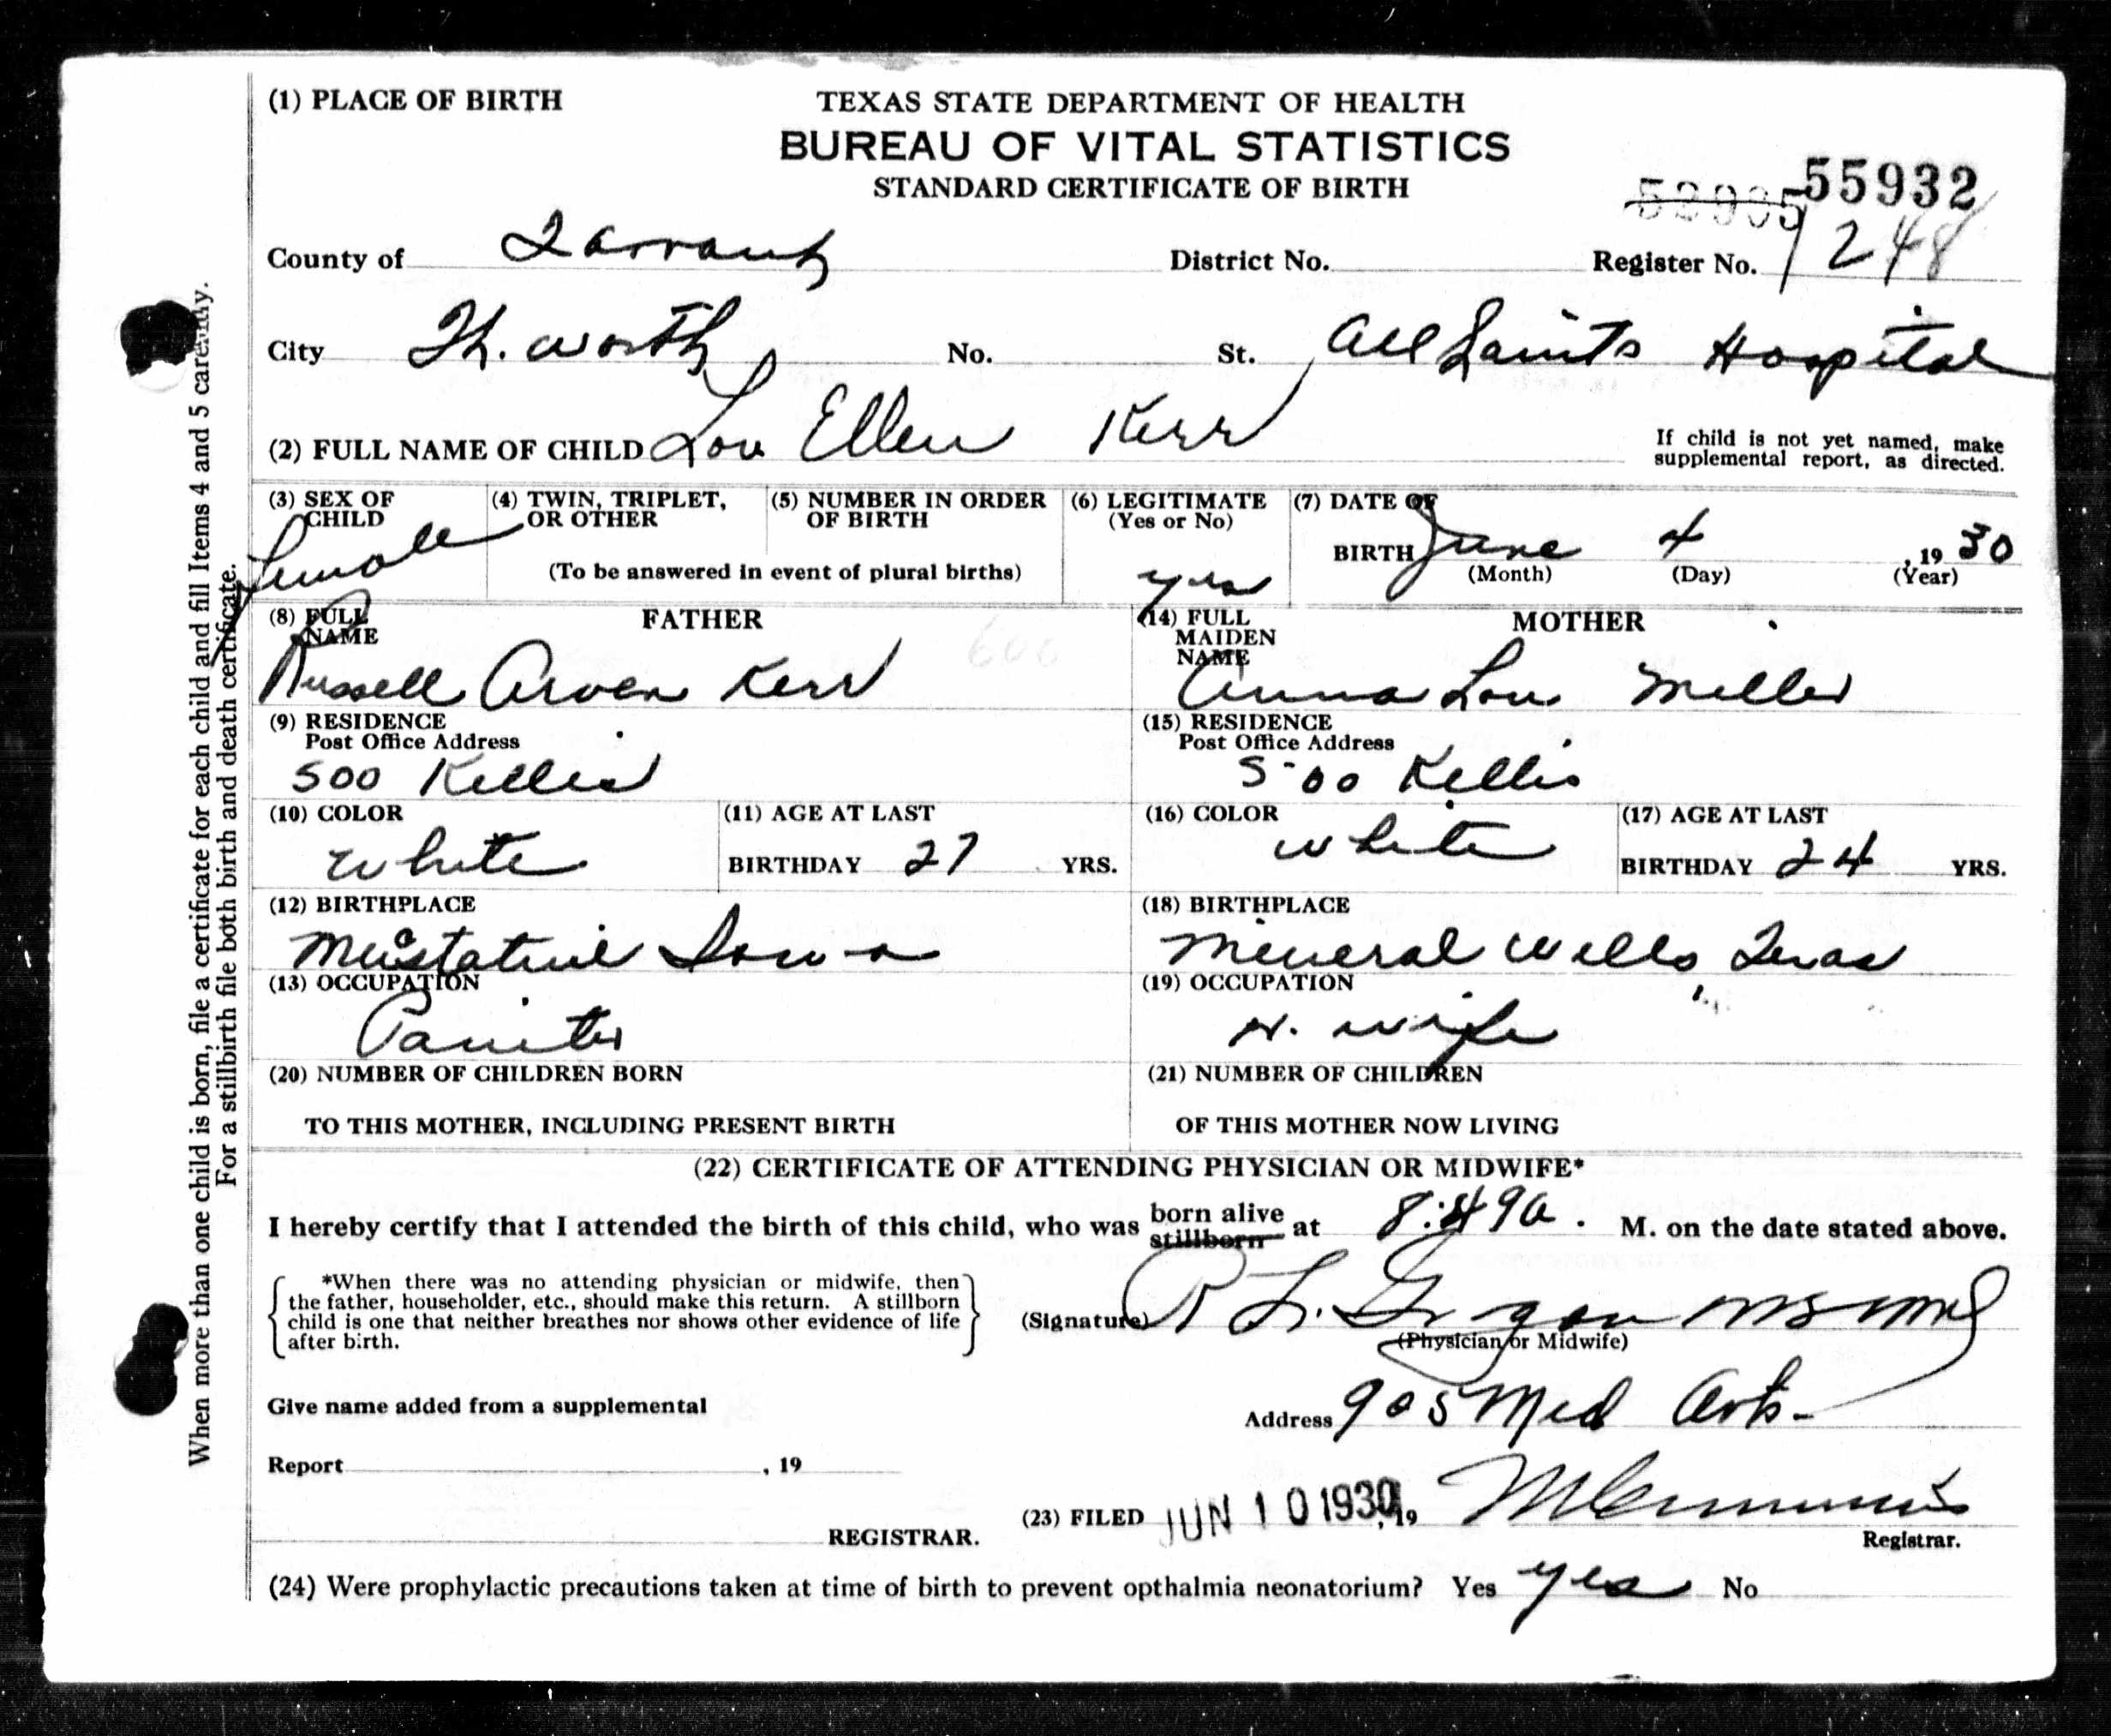 (1) PLACE OF BIRTH
TEXAS STATE DEPARTMENT OF HEALTH
BUREAU OF VITAL STATISTICS
STANDARD CERTIFICATE OF BIRTH
55932
County of Tarrant District No. Register No. 1248
City Ft. Worth No. St. All Saints Hospital
(2) FULL NAME OF CHILD Lou Ellen Kerr
If child is not yet named, make
supplemental report, as directed.
(3) SEX OF CHILD Female
(4) TWIN, TRIPLET, OR OTHER
(5) NUMBER IN ORDER OF BIRTH
(To be answered in event of plural births)
(6) LEGITIMATE (Yes or No) yes
(7) DATE OF BIRTH June 4, 1930
(Month) (Day) (Year)
FATHER
(8) FULL NAME
Russell Arven Kerr
(9) RESIDENCE
Post Office Address
500 Kellis
(10) COLOR
White
(11) AGE AT LAST
BIRTHDAY 27 YRS.
(12) BIRTHPLACE
Iowa
(13) OCCUPATION
Painter
MOTHER
(14) FULL MAIDEN NAME
Anna Lou Miller
(15) RESIDENCE
Post Office Address
500 Kellis
(16) COLOR
White
(17) AGE AT LAST
BIRTHDAY 24 YRS.
(18) BIRTHPLACE
Mineral Wells Texas
(19) OCCUPATION
H. wife
(20) NUMBER OF CHILDREN BORN
TO THIS MOTHER, INCLUDING PRESENT BIRTH
(21) NUMBER OF CHILDREN
OF THIS MOTHER NOW LIVING
(22) CERTIFICATE OF ATTENDING PHYSICIAN OR MIDWIFE*
I hereby certify that I attended the birth of this child, who was born alive stillborn at 8:49 a. M. on the date stated above.
*When there was no attending physician or midwife, then
the father, householder, etc., should make this return. A stillborn
child is one that neither breathes nor shows other evidence of life
after birth.
(Signature) R L.
(Physician or Midwife)
Give name added from a supplemental
Address 905 Med Arts
Report , 19
(23) FILED JUN 10 1930, 19
REGISTRAR.
Registrar.
(24) Were prophylactic precautions taken at time of birth to prevent opthalmia neonatorium? Yes yes No
When more than one child is born, file a certificate for each child and fill Items 4 and 5 carefully.
For a stillbirth file both birth and death certificate.